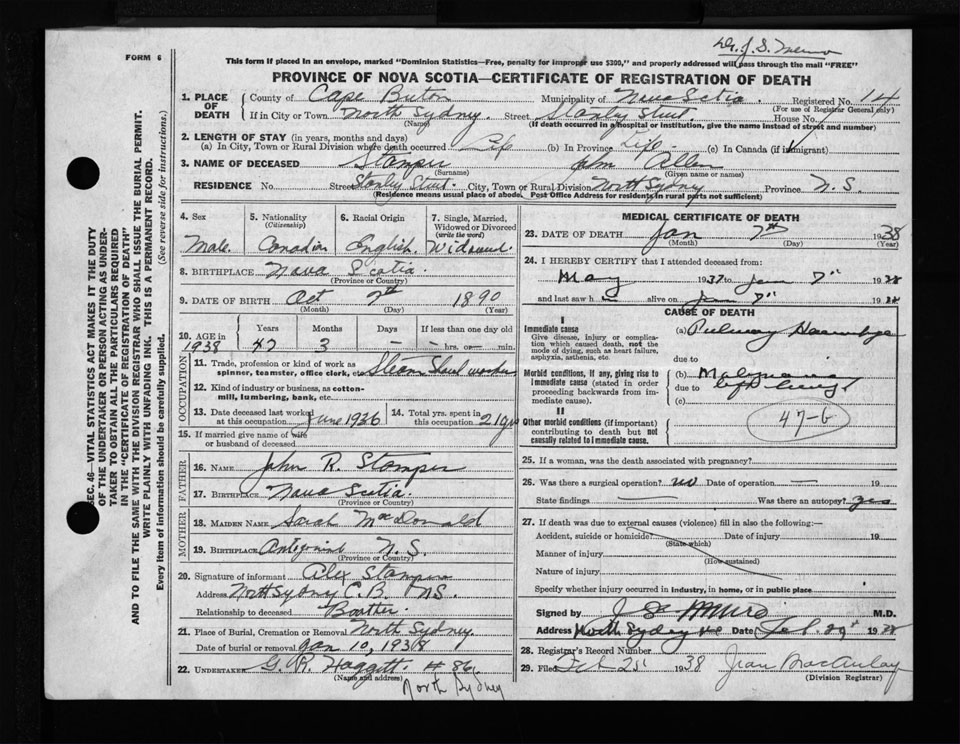 Dr. J. S. Munro
FORM 6
This form if placed in an envelope, marked "Dominion Statistics—Free, penalty for improper use $300," and properly addressed will pass through the mail "FREE"
PROVINCE OF NOVA SCOTIA—CERTIFICATE OF REGISTRATION OF DEATH
1. PLACE OF DEATH County of Cape Breton Municipality of Nova Scotia. Registered No. 14
(For use of Registrar General only)
If in City or Town North Sydney. Street Stanly Street. House No.
(Name) (If death occurred in a hospital or institution, give the name instead of street and number)
2. LENGTH OF STAY (in years, months and days)
(a) In City, Town or Rural Division where death occurred Life (b) In Province Life. (c) In Canada (if immigrant)
3. NAME OF DECEASED Stamper John Allen
(Surname) (Given name or names)
RESIDENCE No. Street Stanly Street. City, Town or Rural Division North Sydney Province N. S.
(Residence means usual place of abode. Post Office Address for residents in rural parts not sufficient)
4. Sex 5. Nationality 6. Racial Origin 7. Single, Married, Widowed or Divorced
(Citizenship) (write the word)
Male. Canadian English. Widowed.
8. BIRTHPLACE Nova Scotia.
(Province or Country)
9. DATE OF BIRTH Oct 7th 1890
(Month) (Day) (Year)
10. AGE in Years Months Days If less than one day old
1938 47 3 — — hrs. or min.
OCCUPATION
11. Trade, profession or kind of work as spinner, teamster, office clerk, etc. Steam Shovel worker
12. Kind of industry or business, as cotton-mill, lumbering, bank, etc.
13. Date deceased last worked at this occupation June 1936 14. Total yrs. spent in this occupation 21 yrs
15. If married give name of wife or husband of deceased
FATHER
16. NAME John R. Stamper
17. BIRTHPLACE Nova Scotia.
(Province or Country)
MOTHER
18. MAIDEN NAME Sarah MacDonald
19. BIRTHPLACE N. S.
(Province or Country)
20. Signature of informant Alex Stamper
Address North Sydney C. B. N.S.
Relationship to deceased Brother.
21. Place of Burial, Cremation or Removal North Sydney.
Date of burial or removal Jan 10, 1938
22. UNDERTAKER G. R. Haggett # 86.
(Name and address)
North Sydney
MEDICAL CERTIFICATE OF DEATH
23. DATE OF DEATH Jan 7th 1938
(Month) (Day) (Year)
24. I HEREBY CERTIFY that I attended deceased from:
May 1937 to Jan 7" 1938
and last saw h alive on Jan 7" 1938
CAUSE OF DEATH
I
Immediate cause (a)
Give disease, injury or complication which caused death, not the mode of dying, such as heart failure, asphyxia, asthenia, etc.
due to
Morbid conditions, if any, giving rise to immediate cause (stated in order proceeding backwards from immediate cause).
(b)
due to left lung
(c)
47-6
II
Other morbid conditions (if important) contributing to death but not causally related to immediate cause.
25. If a woman, was the death associated with pregnancy?
26. Was there a surgical operation? no Date of operation — 19
State findings — Was there an autopsy? yes
27. If death was due to external causes (violence) fill in also the following:—
Accident, suicide or homicide? Date of injury 19
(State which)
Manner of injury
(How sustained)
Nature of injury
Specify whether injury occurred in industry, in home, or in public place
Signed by J S Munro M.D.
Address North Sydney N.S. Date Feb. 1938
28. Registrar's Record Number
29. Filed 1938 Jean MacAulay
(Division Registrar)
SEC. 46—VITAL STATISTICS ACT MAKES IT THE DUTY
OF THE UNDERTAKER OR PERSON ACTING AS UNDER-
TAKER TO OBTAIN ALL THE PARTICULARS REQUIRED
IN THE "CERTIFICATE OF REGISTRATION OF DEATH"
AND TO FILE THE SAME WITH THE DIVISION REGISTRAR WHO SHALL ISSUE THE BURIAL PERMIT.
WRITE PLAINLY WITH UNFADING INK. THIS IS A PERMANENT RECORD.
Every item of information should be carefully supplied. (See reverse side for instructions.)